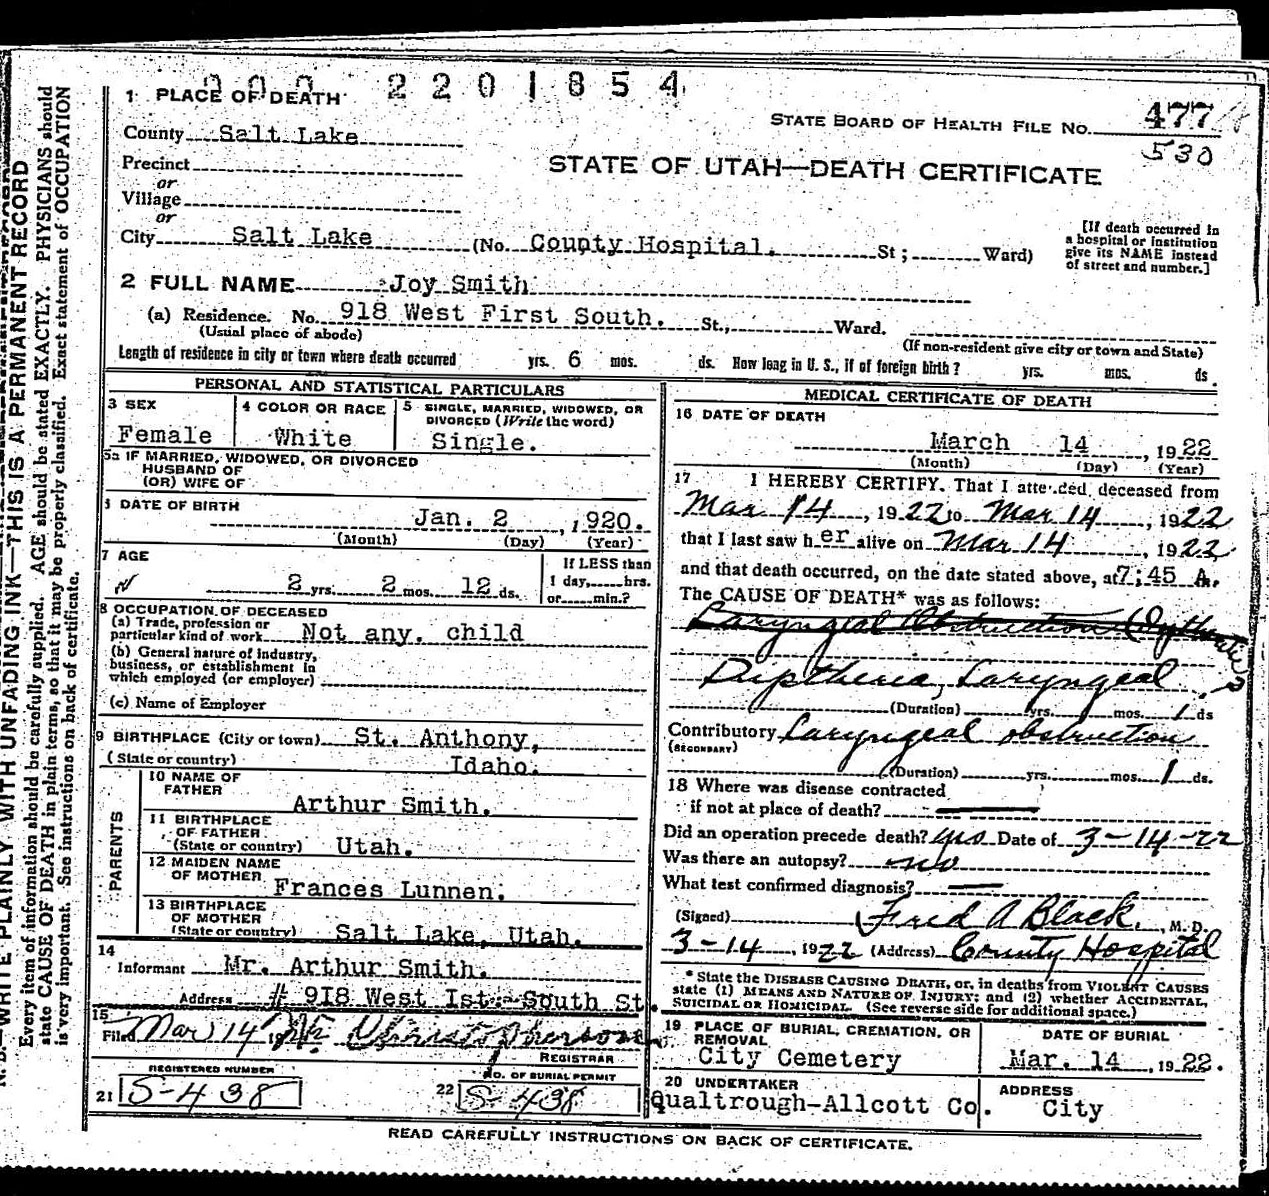 2201854
1 PLACE OF DEATH
STATE BOARD OF HEALTH FILE NO. 477
530
County Salt Lake
STATE OF UTAH—DEATH CERTIFICATE
Precinct
or
Village
or
City Salt Lake (No. County Hospital. St; Ward)
[If death occurred in a hospital or institution give its NAME instead of street and number.]
2 FULL NAME Joy Smith
(a) Residence. No. 918 West First South. St., Ward.
(Usual place of abode) (If non-resident give city or town and State)
Length of residence in city or town where death occurred yrs. 6 mos. ds. How long in U. S., if of foreign birth? yrs. mos. ds.
PERSONAL AND STATISTICAL PARTICULARS
3 SEX
Female
4 COLOR OR RACE
White
5 SINGLE, MARRIED, WIDOWED, OR DIVORCED (Write the word)
Single.
5a IF MARRIED, WIDOWED, OR DIVORCED
HUSBAND OF
(OR) WIFE OF
DATE OF BIRTH
Jan. 2, 1920.
(Month) (Day) (Year)
7 AGE
2 yrs. 2 mos. 12 ds.
If LESS than
1 day, hrs.
or min.?
8 OCCUPATION OF DECEASED
(a) Trade, profession or
particular kind of work Not any. child
(b) General nature of industry,
business, or establishment in
which employed (or employer)
(c) Name of Employer
9 BIRTHPLACE (City or town) St. Anthony,
(State or country) Idaho.
PARENTS
10 NAME OF FATHER
Arthur Smith.
11 BIRTHPLACE OF FATHER
(State or country) Utah.
12 MAIDEN NAME OF MOTHER
Frances Lunnen.
13 BIRTHPLACE OF MOTHER
(State or country) Salt Lake, Utah.
14
Informant Mr. Arthur Smith.
Address # 918 West 1st. South St.
15
Filed Mar 14 19
REGISTRAR
REGISTERED NUMBER
21 S-438
NO. OF BURIAL PERMIT
22 S-438
MEDICAL CERTIFICATE OF DEATH
16 DATE OF DEATH
March 14, 1922
(Month) (Day) (Year)
17 I HEREBY CERTIFY. That I attended deceased from
Mar 14, 1922 to Mar 14, 1922
that I last saw her alive on Mar 14, 1922
and that death occurred, on the date stated above, at 7:45 A.
The CAUSE OF DEATH* was as follows:
Laryngeal Obstruction
Diptheria, Laryngeal
(Duration) yrs. mos. 1 ds
Contributory Laryngeal obstruction
(SECONDARY)
(Duration) yrs. mos. 1 ds.
18 Where was disease contracted
if not at place of death?
Did an operation precede death? yes Date of 3-14-22
Was there an autopsy? no
What test confirmed diagnosis?
(Signed) Fred A Black, M.D.
3-14, 1922 (Address) County Hospital
* State the DISEASE CAUSING DEATH, or, in deaths from VIOLENT CAUSES
state (1) MEANS AND NATURE OF INJURY; and (2) whether ACCIDENTAL,
SUICIDAL OR HOMICIDAL. (See reverse side for additional space.)
19 PLACE OF BURIAL, CREMATION, OR REMOVAL
City Cemetery
DATE OF BURIAL
Mar. 14, 1922.
20 UNDERTAKER
Qualtrough-Allcott Co.
ADDRESS
City
READ CAREFULLY INSTRUCTIONS ON BACK OF CERTIFICATE.
WRITE PLAINLY WITH UNFADING INK—THIS IS A PERMANENT RECORD
Every item of information should be carefully supplied. AGE should be stated EXACTLY. PHYSICIANS should
state CAUSE OF DEATH in plain terms, so that it may be properly classified. Exact statement of OCCUPATION
is very important. See instructions on back of certificate.